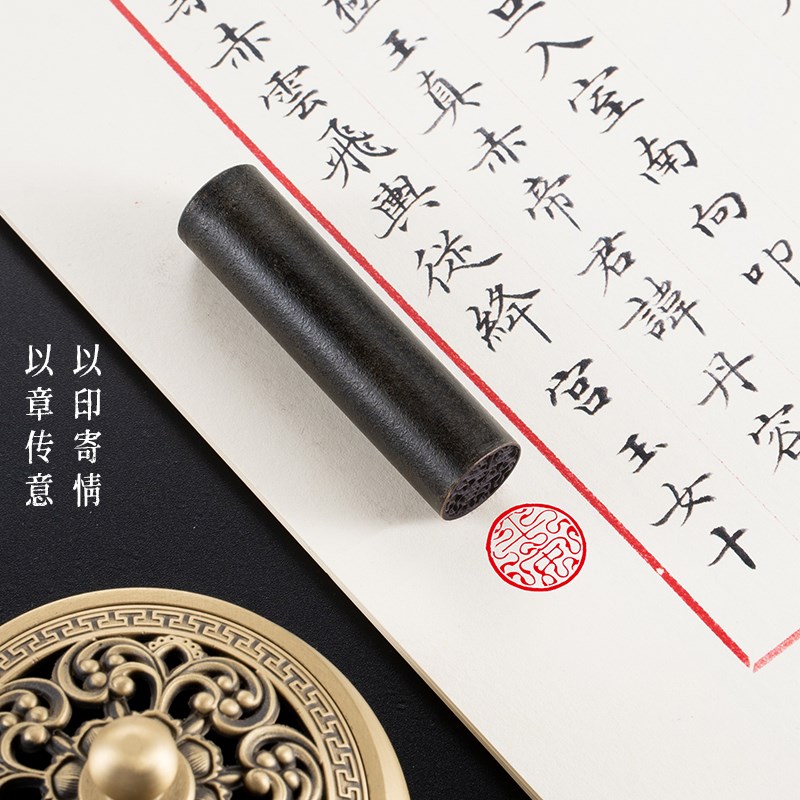 入室南向叩
玉真赤帝君諱丹容
赤雲飛輿從絳宮玉女十
以印寄情
以章传意